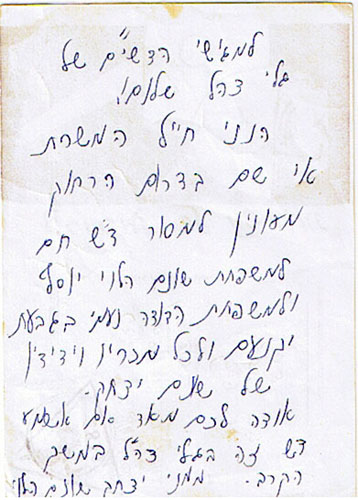 למגישי הדשי״ם של
גלי צהל שלום!
הנני חייל המשרת
אי שם בדרום הרחוק
מעונין למסור ד״ש חם
למשפחת שונם הלוי יוסף
ולמשפחת הדודה נעמי בגבעת
יקנעם ולכל מכריו וידידיו
של שונם יצחק.
אודה לכם מאד אם אשמע
דש זה בגלי צה״ל במשק
הקרב. ממני יצחק שונם הלוי